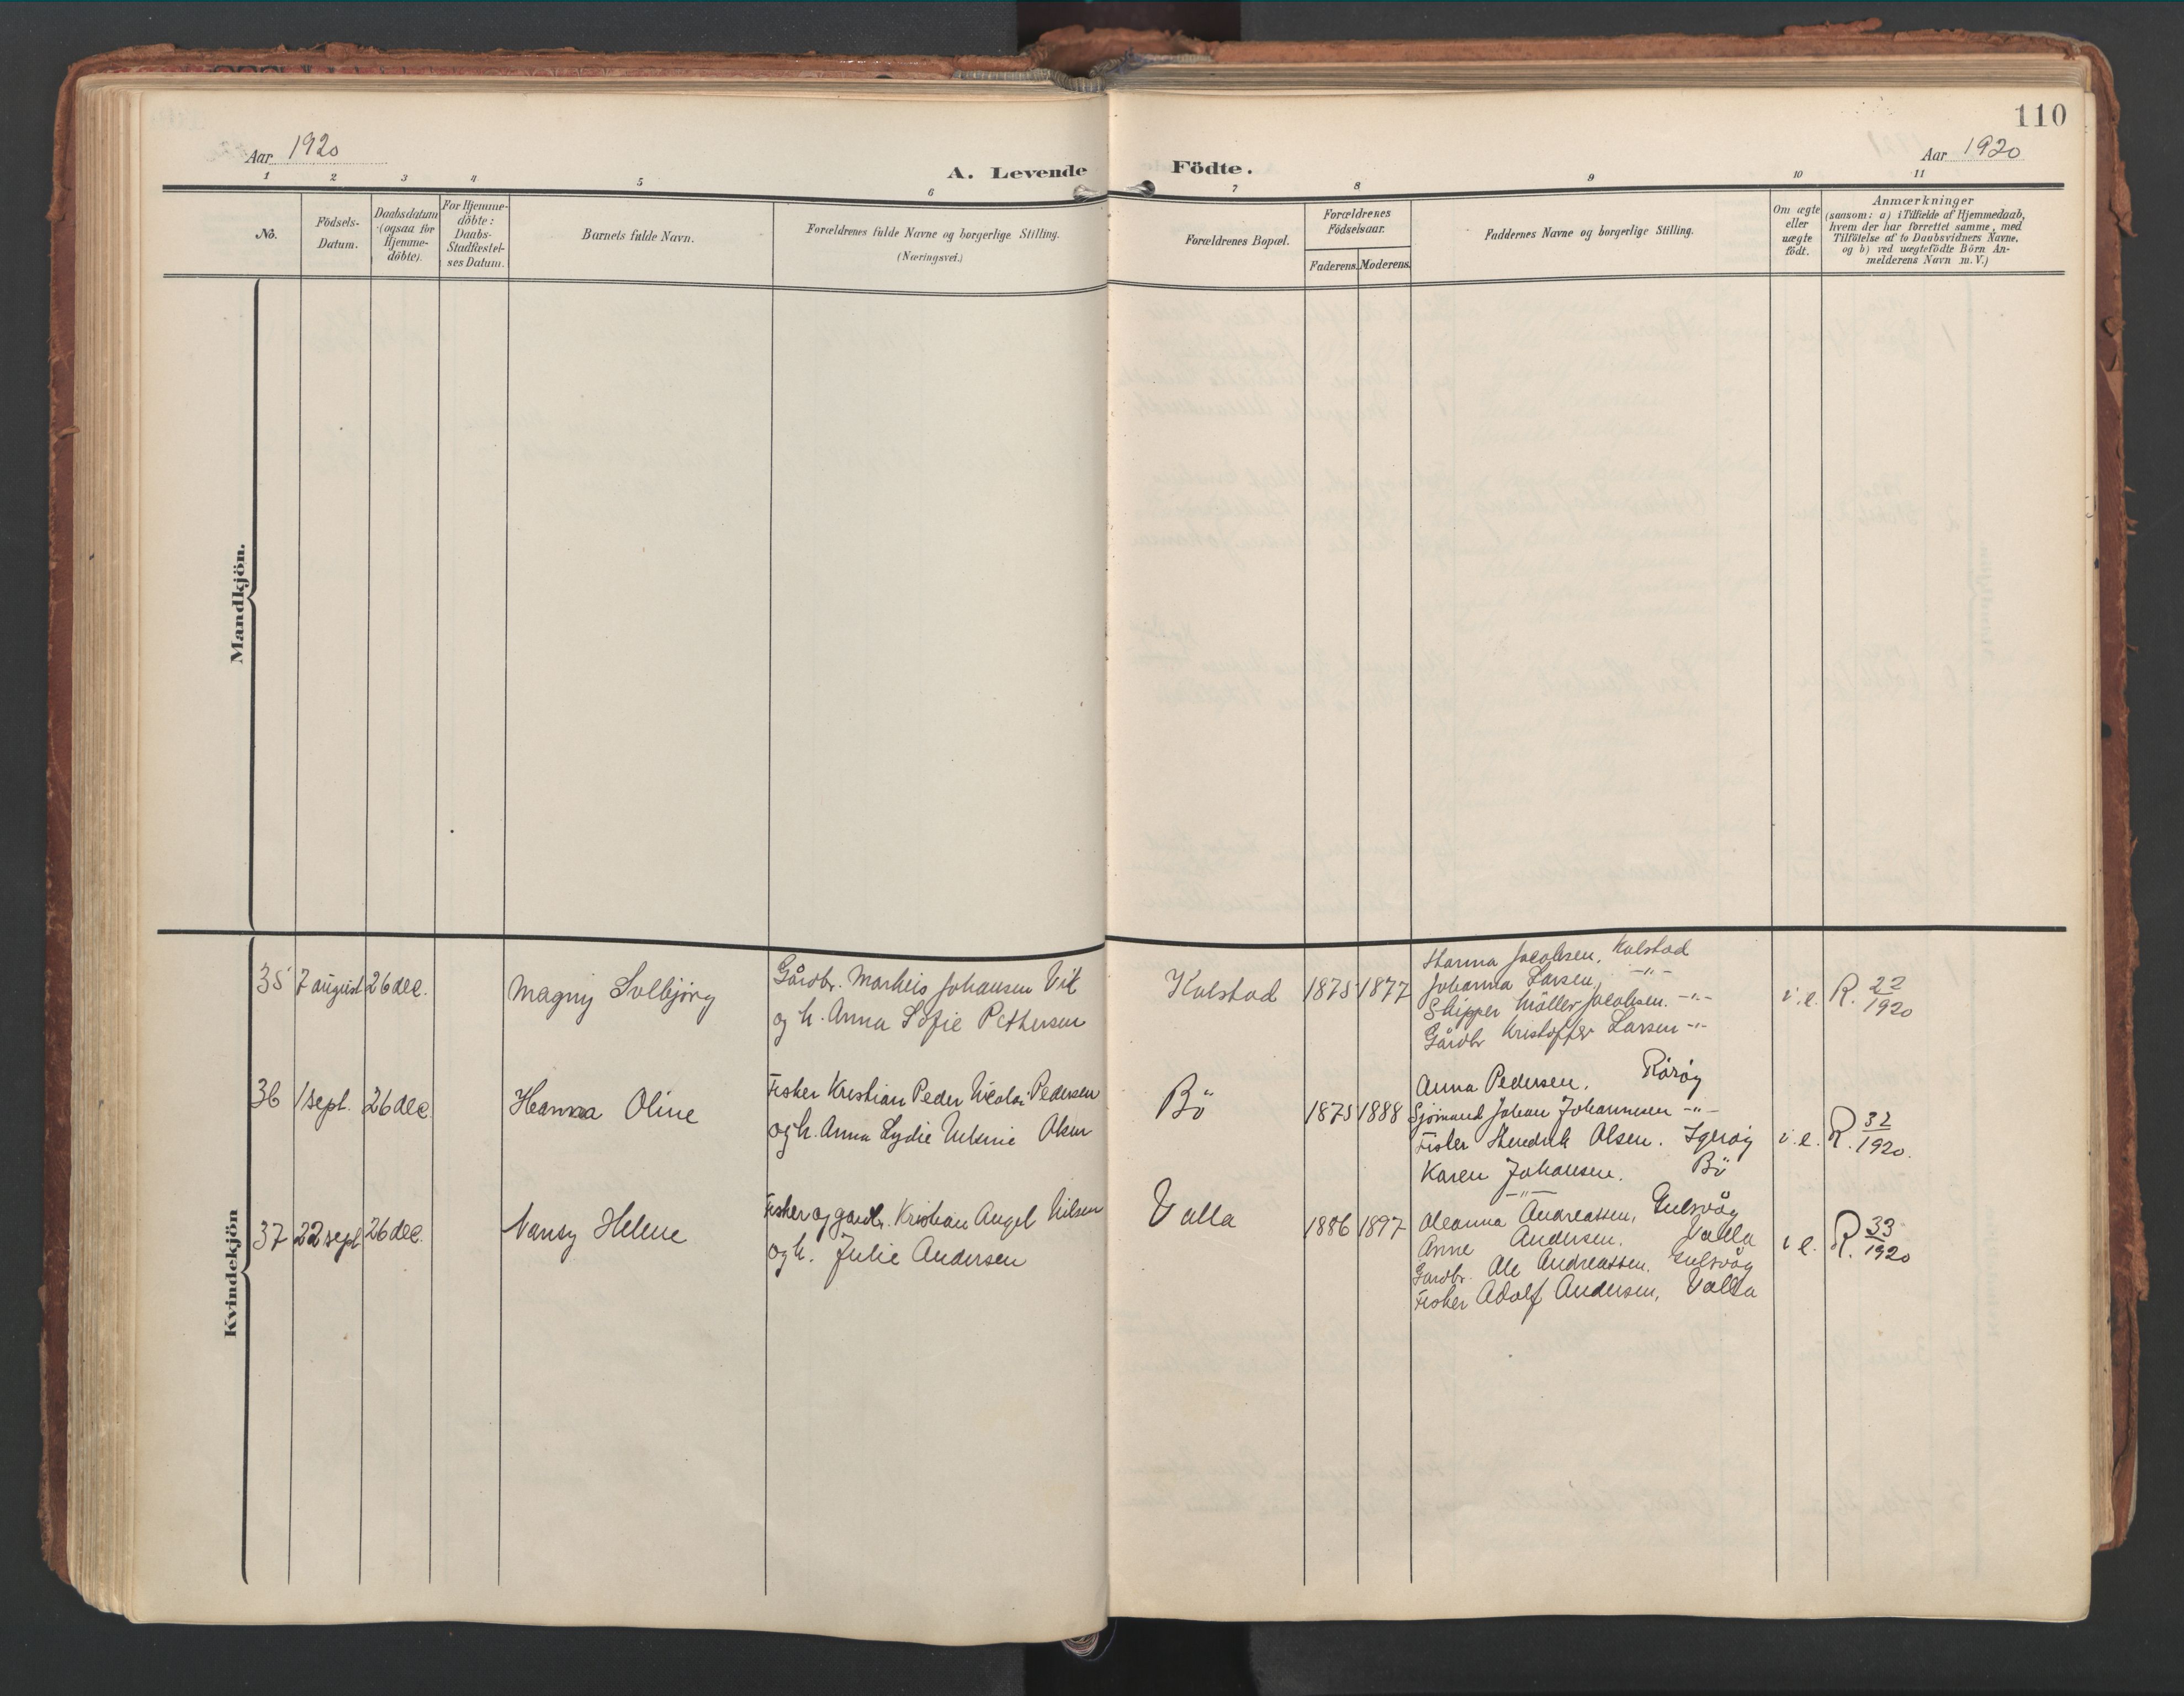 110
Aar 1920
A. Levende Födte.
Aar 1920
1 2 3 4 5 6 7 8 9 10 11
No.
Födsels-
Datum.
Daabsdatum
(ogsaa for
Hjemme-
döbte).
For Hjemme-
döbte:
Daabs-
Stadfæstel-
ses Datum.
Barnets fulde Navn.
Forældrenes fulde Navne og borgerlige Stilling.
(Næringsvei.)
Forældrenes Bopæl.
Forældrenes
Födselsaar.
Faderens. Moderens.
Faddernes Navne og borgerlige Stilling.
Om ægte
eller
uægte
födt.
Anmærkninger
(saasom: a) i Tilfælde af Hjemmedaab,
hvem der har forrettet samme, med
Tilföielse af to Daabsvidners Navne,
og b) ved uægtefödte Börn An-
melderens Navn m. V.)
Mandkjön.
Kvindekjön
35 7 august 26 dec. Magny Solbjörg
Gårdbr. Markus Johansen Vik
og h. Anna Sofie Pettersen
Kulstad 1875 1877
Hanna Jacobsen, Kulstad
Johanna Larsen, -"-
Skipper Möller Jacobsen. -"-
Gårdbr Kristoffer Larsen -"-
i.e. R. 22/1920
36 1 sept. 26 dec Hanna Oline
Fisker Kristian Peder Nicolai Pedersen
og h. Anna Lydie Olsen
Bö 1875 1888
Anna Pedersen. Röröy
Sjömand Johan Johannesen -"-
Fisker Hendrik Olsen. Igeröy
Karen Johansen. Bö
-"-
i.e. R. 32/1920.
37 22 sept 26 dec. Nansy Helene
Fisker og gardbr. Kristian Angel Nilsen
og h. Julie Andersen
Valla 1886 1897
Oleanna Andreassen, Gulsvåg
Anne Andersen. Valla
Gardbr. Ole Andreassen. Gulsvåg
Fisker Adolf Andersen, Valla
i e. R. 33/1920